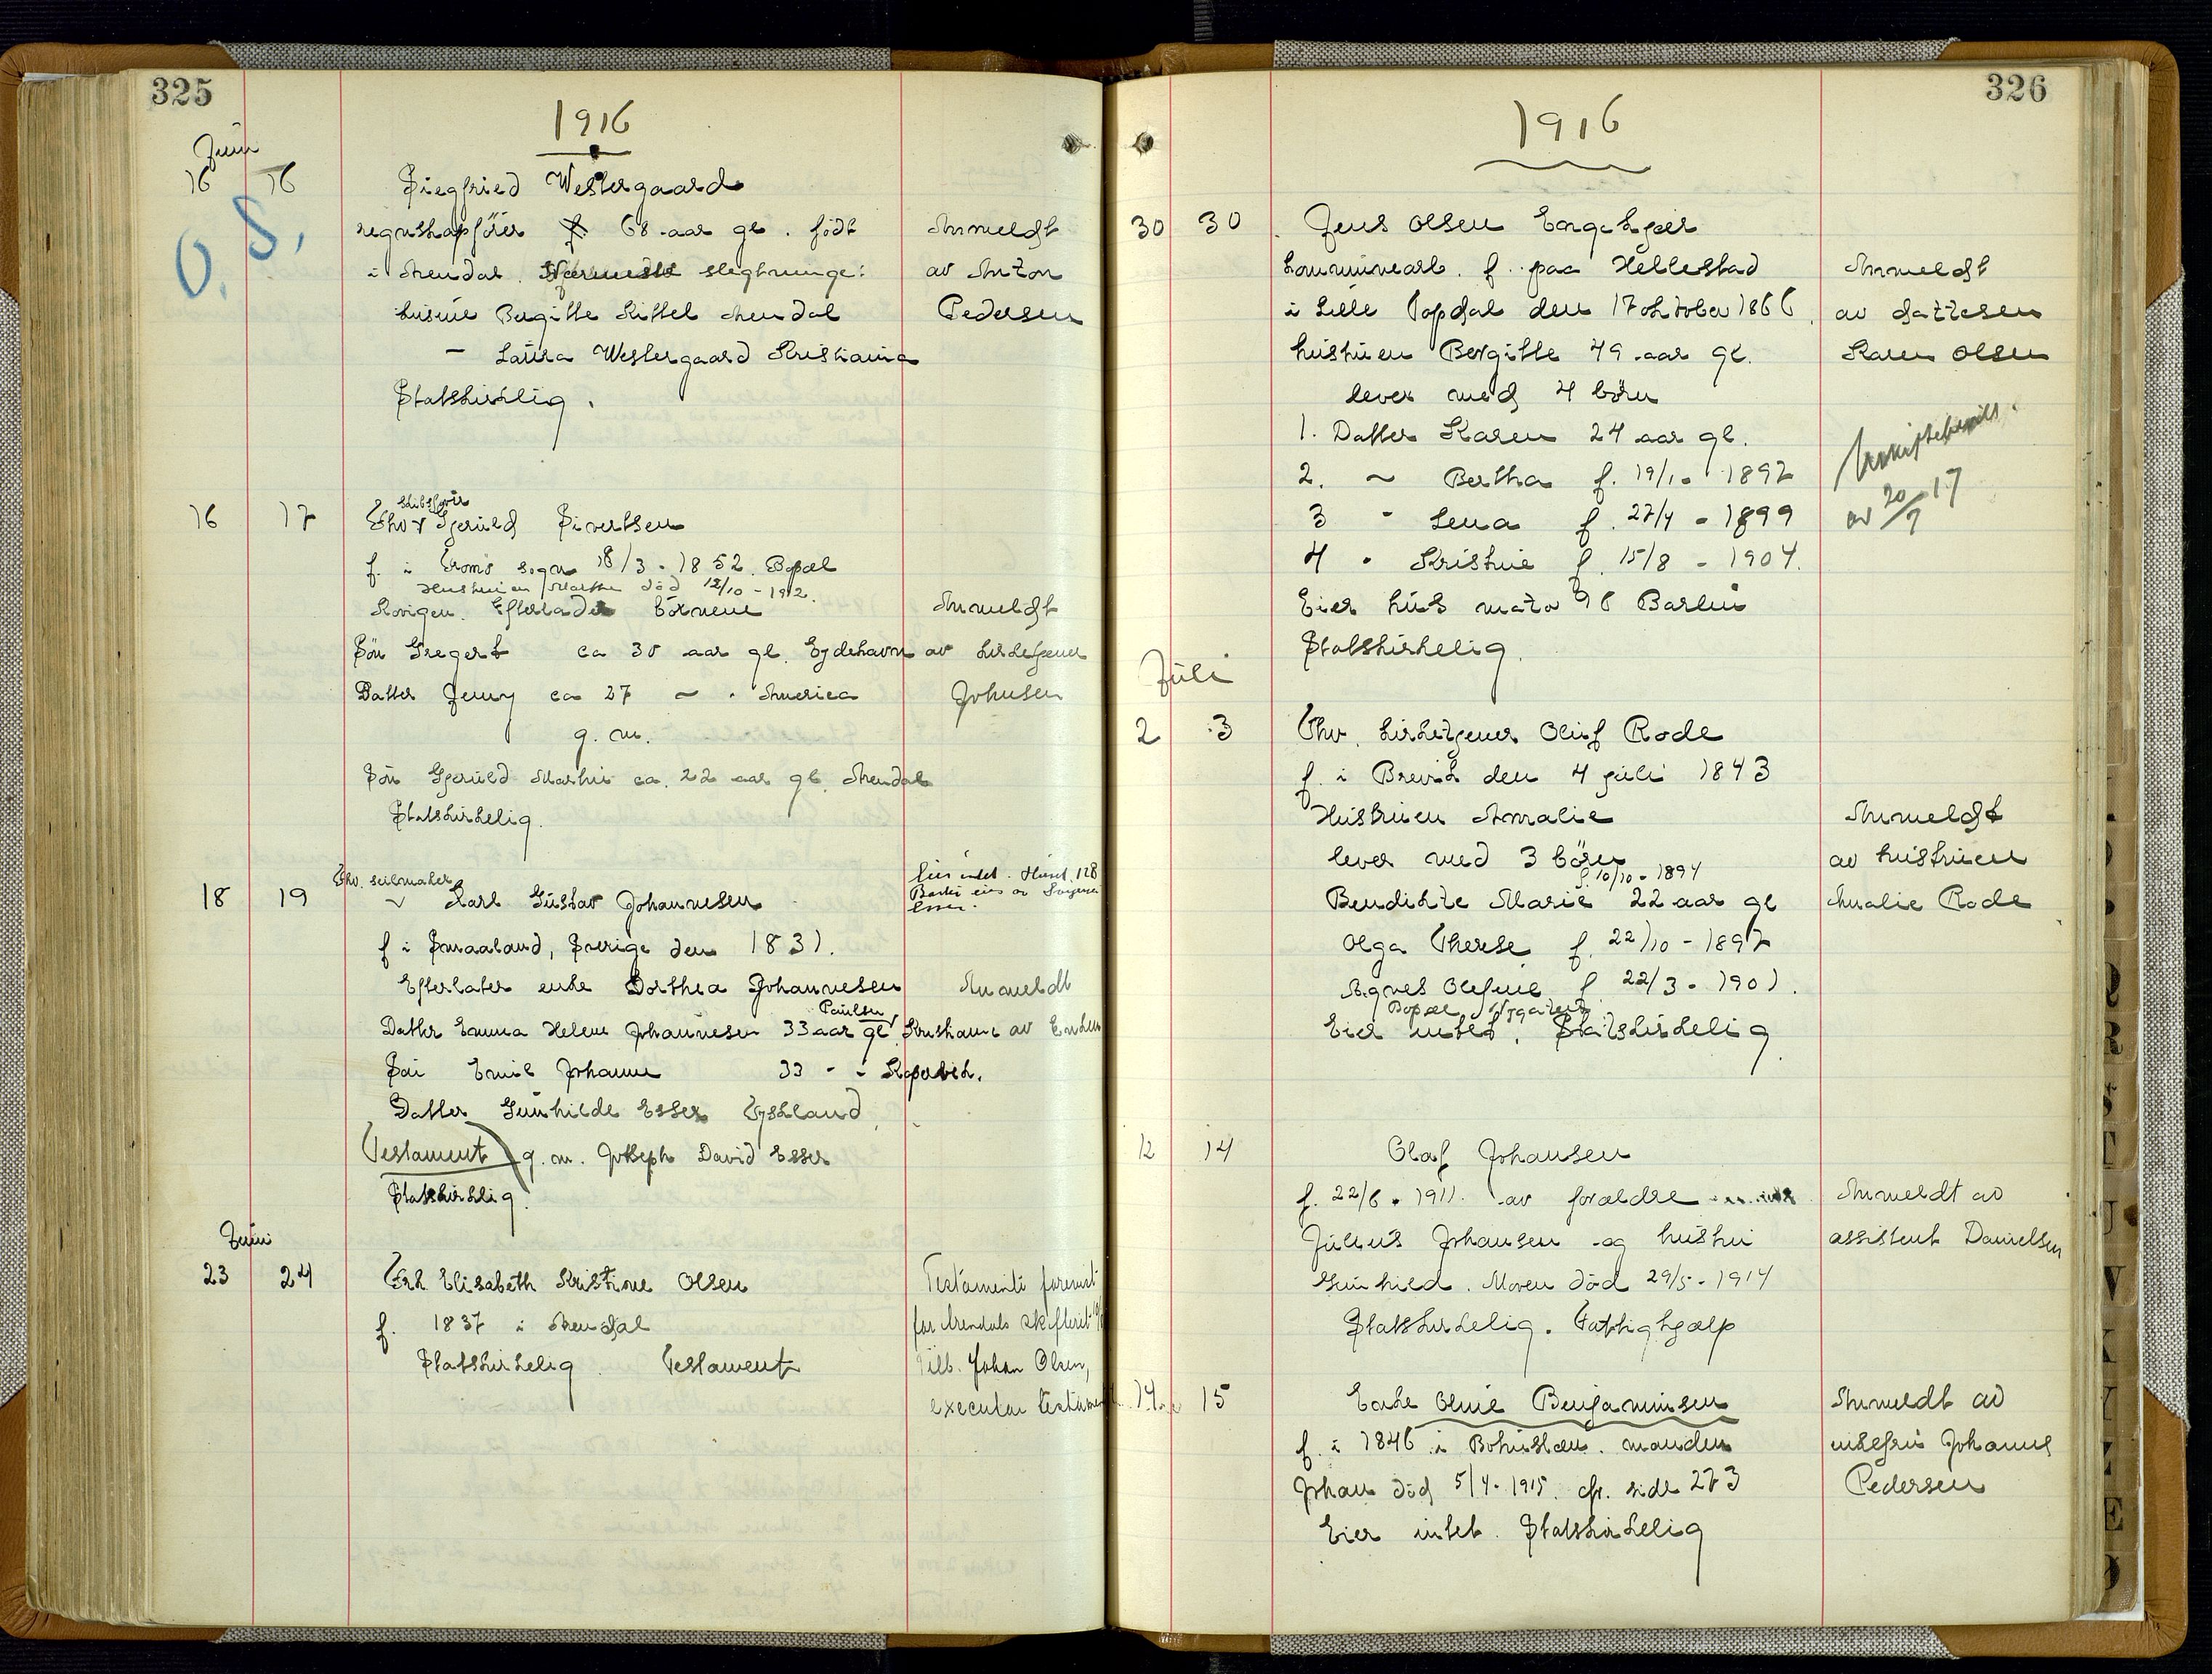 325
1916
Juni
16 16 Siegfried Westergaard
O. S.
regnskapsfører f. 68 aar gl. født Anmeldt
i Arendal. Nærmeste slegtninge: av Anton
kusine Bergitte Kittel Arendal Pedersen
— Laura Westergaard Kristiania
Statskirkelig.
skibsfører
16 17 Ehv Gjeruld Sivertsen
f. i Tromø sogn 18/3 - 1852. Bopæl
Hustruen Marthe død 12/10 - 1912.
Kovigen. Efterlader børnene Anmeldt
Søn Gregert ca 30 aar gl. Eydehavn av kirketjener
Datter Jenny ca 27 — " America Johnsen
g. m.
Søn Gjeruld Martin ca. 22 aar gl. Arendal
Statskirkelig.
Ehv. seilmaker
Eier intet. Huset 128
Barbu eies av
Esser.
18 19 Karl Gustav Johannesen
f i Smaaland, Sverige den 1831.
Efterlater enke Dorthea Johannesen Anmeldt
Paulsen
Datter Emma Helene Johannesen 33 aar gl. Kristiania av Enken
Søn Emil Johannes 33 - -
Datter Gunhilde Esser Tyskland
Testament g. m. Joseph David Esser
Statskirkelig.
Juni
23 24 Erk Elisabeth Kristine Olsen Testamente forevist
f. 1837 i Arendal for Arendals skifteret
Statskirkelig. Testament Johan Olsen,
executor testamenti
326
1916
30 30 Jens Olsen Engekjær
kommunearb. f. paa Hellestad Anmeldt
i Lille Topdal den 17 oktober 1866. av datteren
hustruen Bergitte 49 aar gl. Karen Olsen
lever med 4 børn
1. Datter Karen 24 aar gl.
2. ~ Bertha f. 19/1 - 1897
3 " Lena f. 27/4 - 1899
4 " Kristine f. 15/8 - 1904.
av 20/7 17
Eier hus matr 96 Barbu
Statskirkelig.
Juli
2 3 Fhv. kirketjener Oluf Rode
f. i Brevik den 4 juli 1843
Hustruen Amalie Anmeldt
lever med 3 børn av hustruen
f. 10/10 - 1894
Bendikte Marie 22 aar gl Amalie Rode
Olga Therese f. 22/10 - 1897
Agnes Olefine f. 22/3 - 1901.
Bopæl Nygaten
Eier intet. Statskirkelig
12 14 Olaf Johansen
f. 22/6 - 1911. av forældre Anmeldt av
Julius Johansen og hustru assistent Danielsen
Gunhild. Moren død 29/5 - 1914
Statskirkelig. Fattighjælp
14 15 Enke Oline Benjaminsen Anmeldt av
f. i 1846 i Bohuslæn. manden Johanne
Johan død 5/4 - 1915. cfr. side 273 Pedersen
Eier intet. Statskirkelig